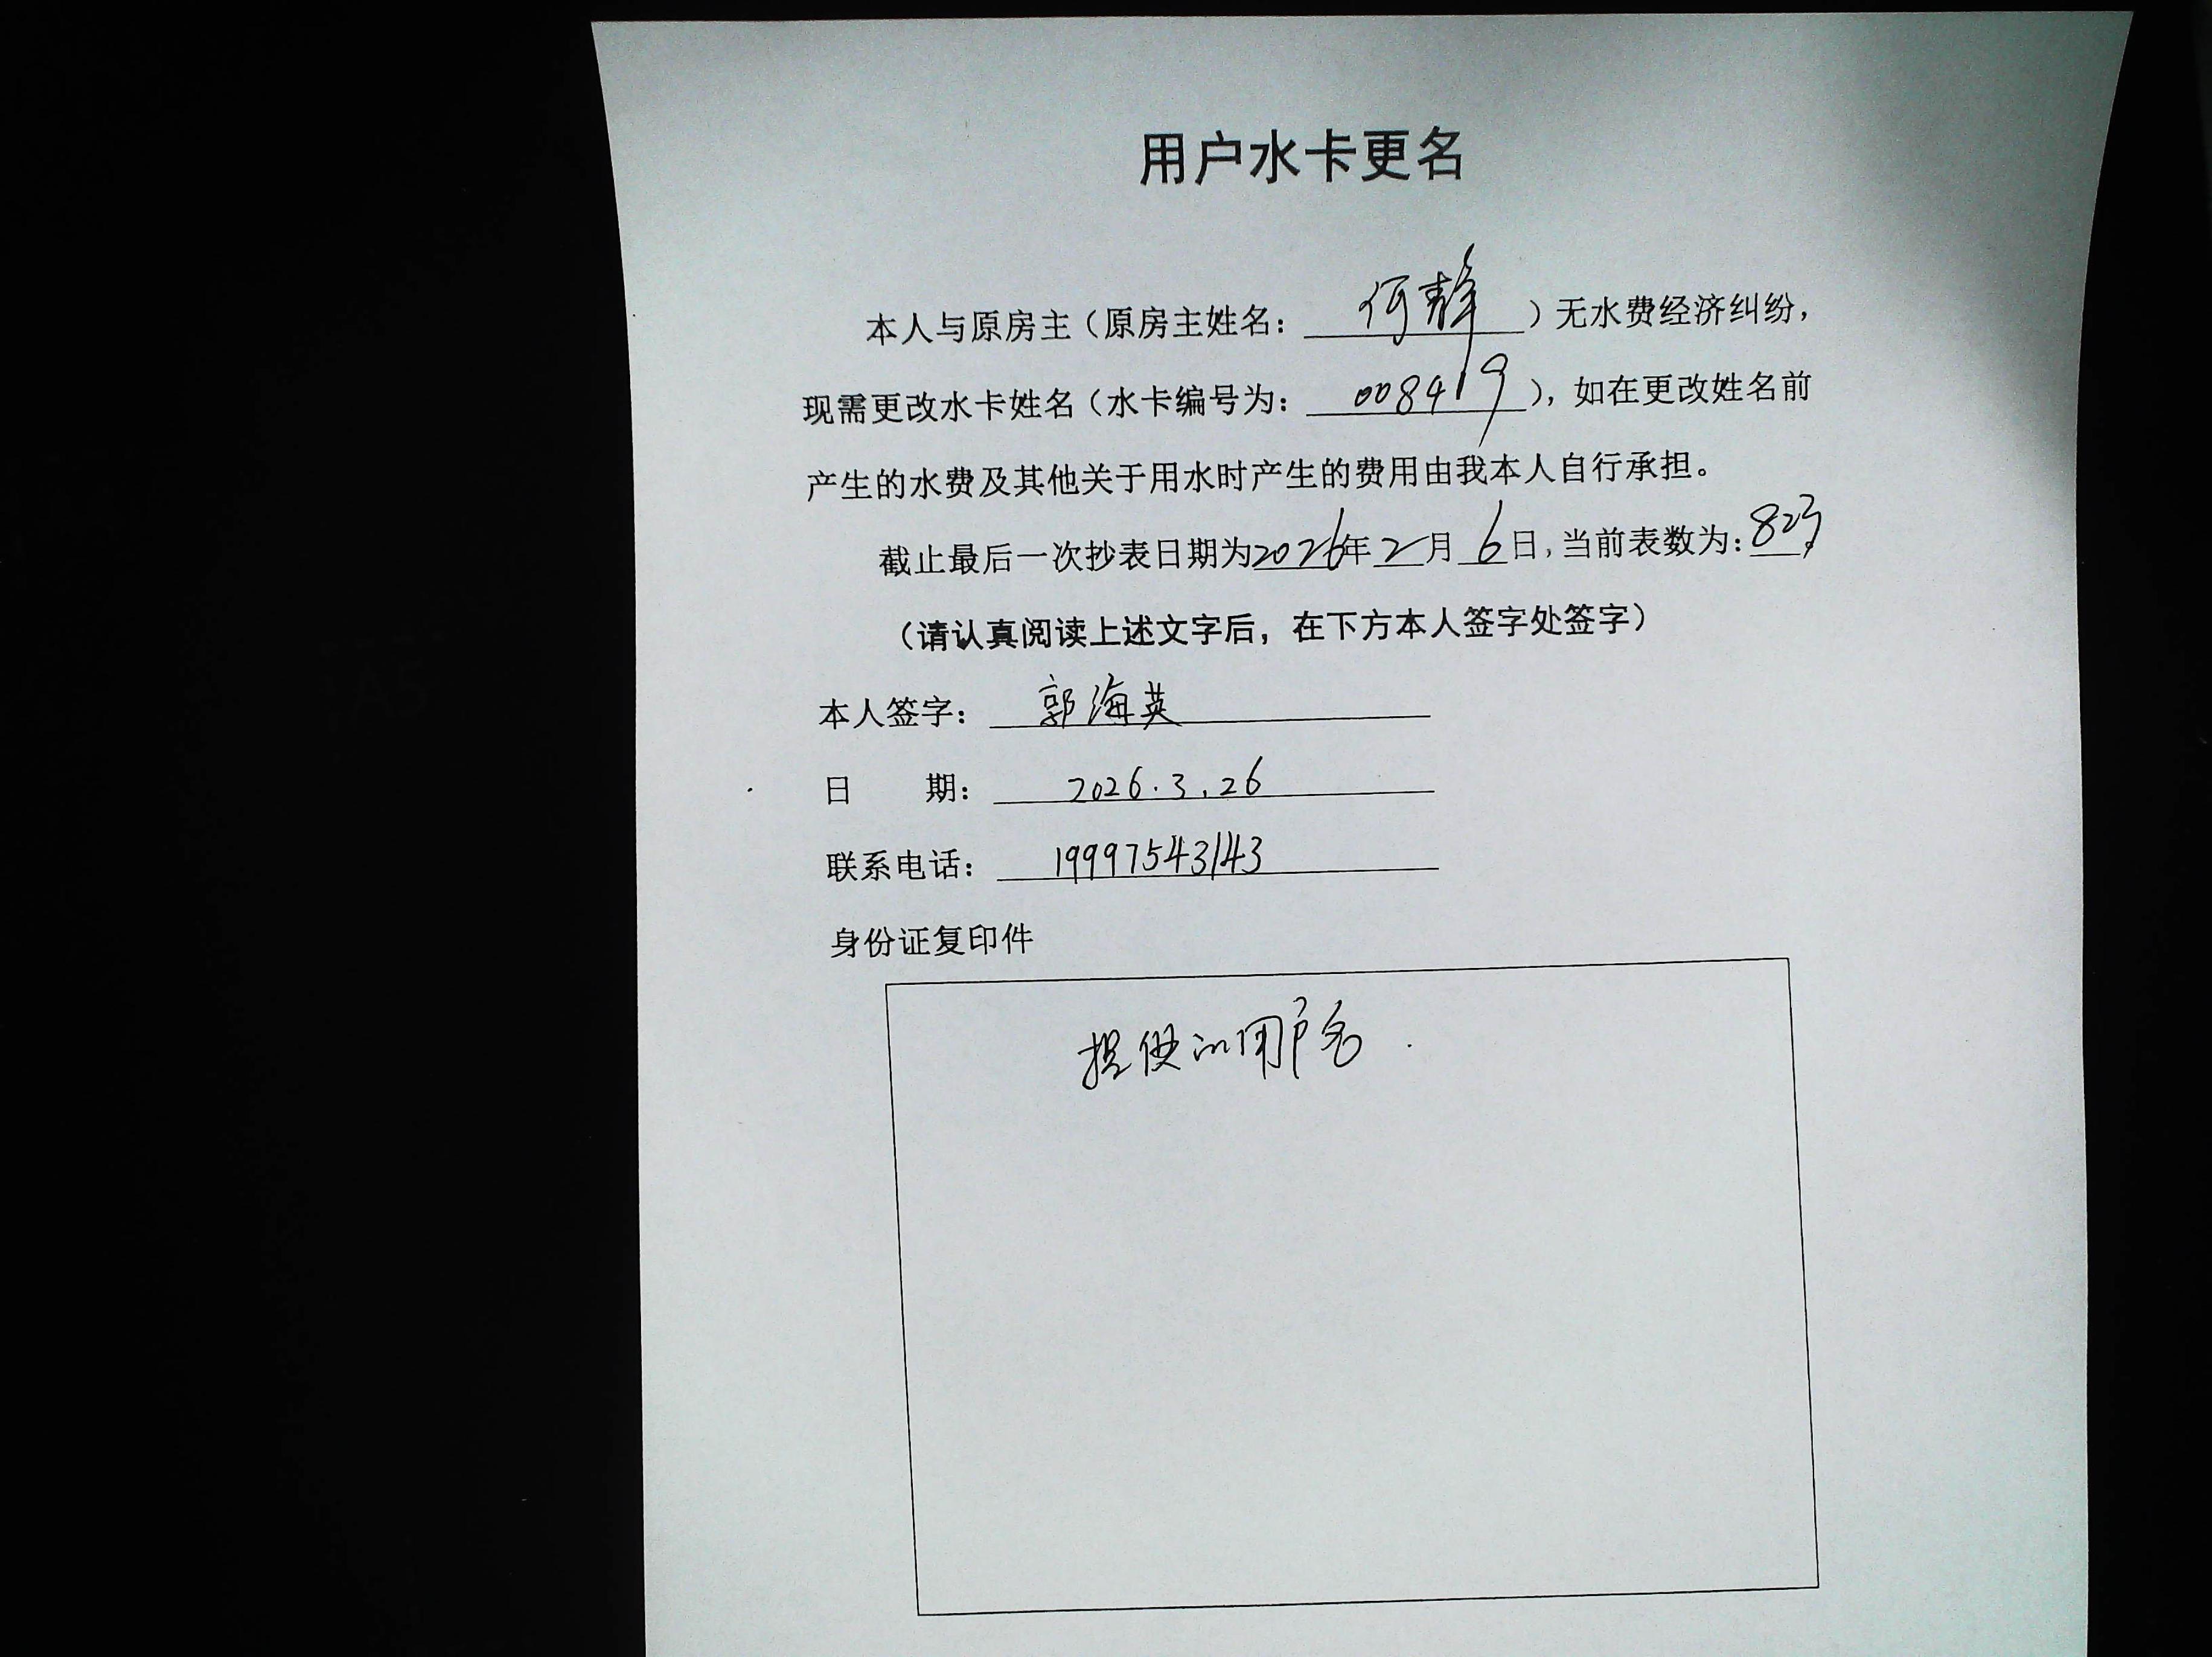 用户水卡更名
本人与原房主（原房主姓名：何静）无水费经济纠纷，
现需更改水卡姓名（水卡编号为：008419），如在更改姓名前
产生的水费及其他关于用水时产生的费用由我本人自行承担。
截止最后一次抄表日期为2026年2月6日，当前表数为：823。
（请认真阅读上述文字后，在下方本人签字处签字）
本人签字：郭海英
日期：2026.3.26
联系电话：19997543143
身份证复印件
提供的用户名.